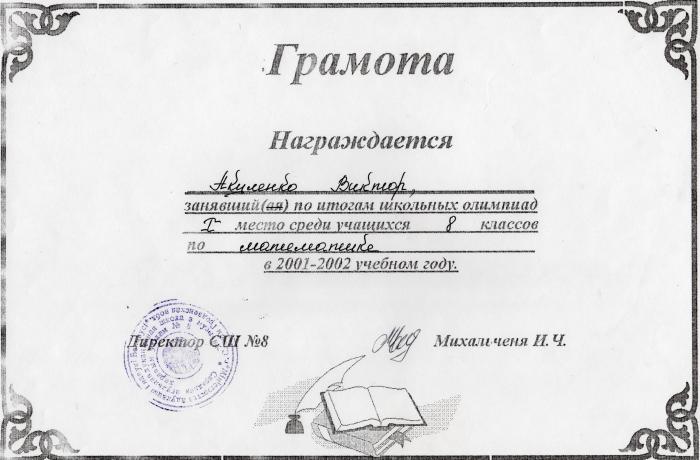 Грамота
Награждается
Акуленко Виктор,
занявший(ая) по итогам школьных олимпиад
I место среди учащихся 8 классов
по математике
в 2001-2002 учебном году.
Директор СШ №8 Михальченя И.Ч.